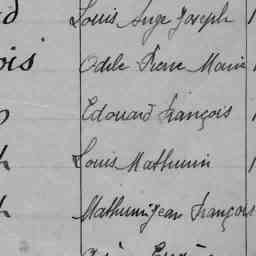 Louis Ange Joseph
ois Odile Pierre Marie
Edouard François
Louis Mathurin
Mathurin Jean François